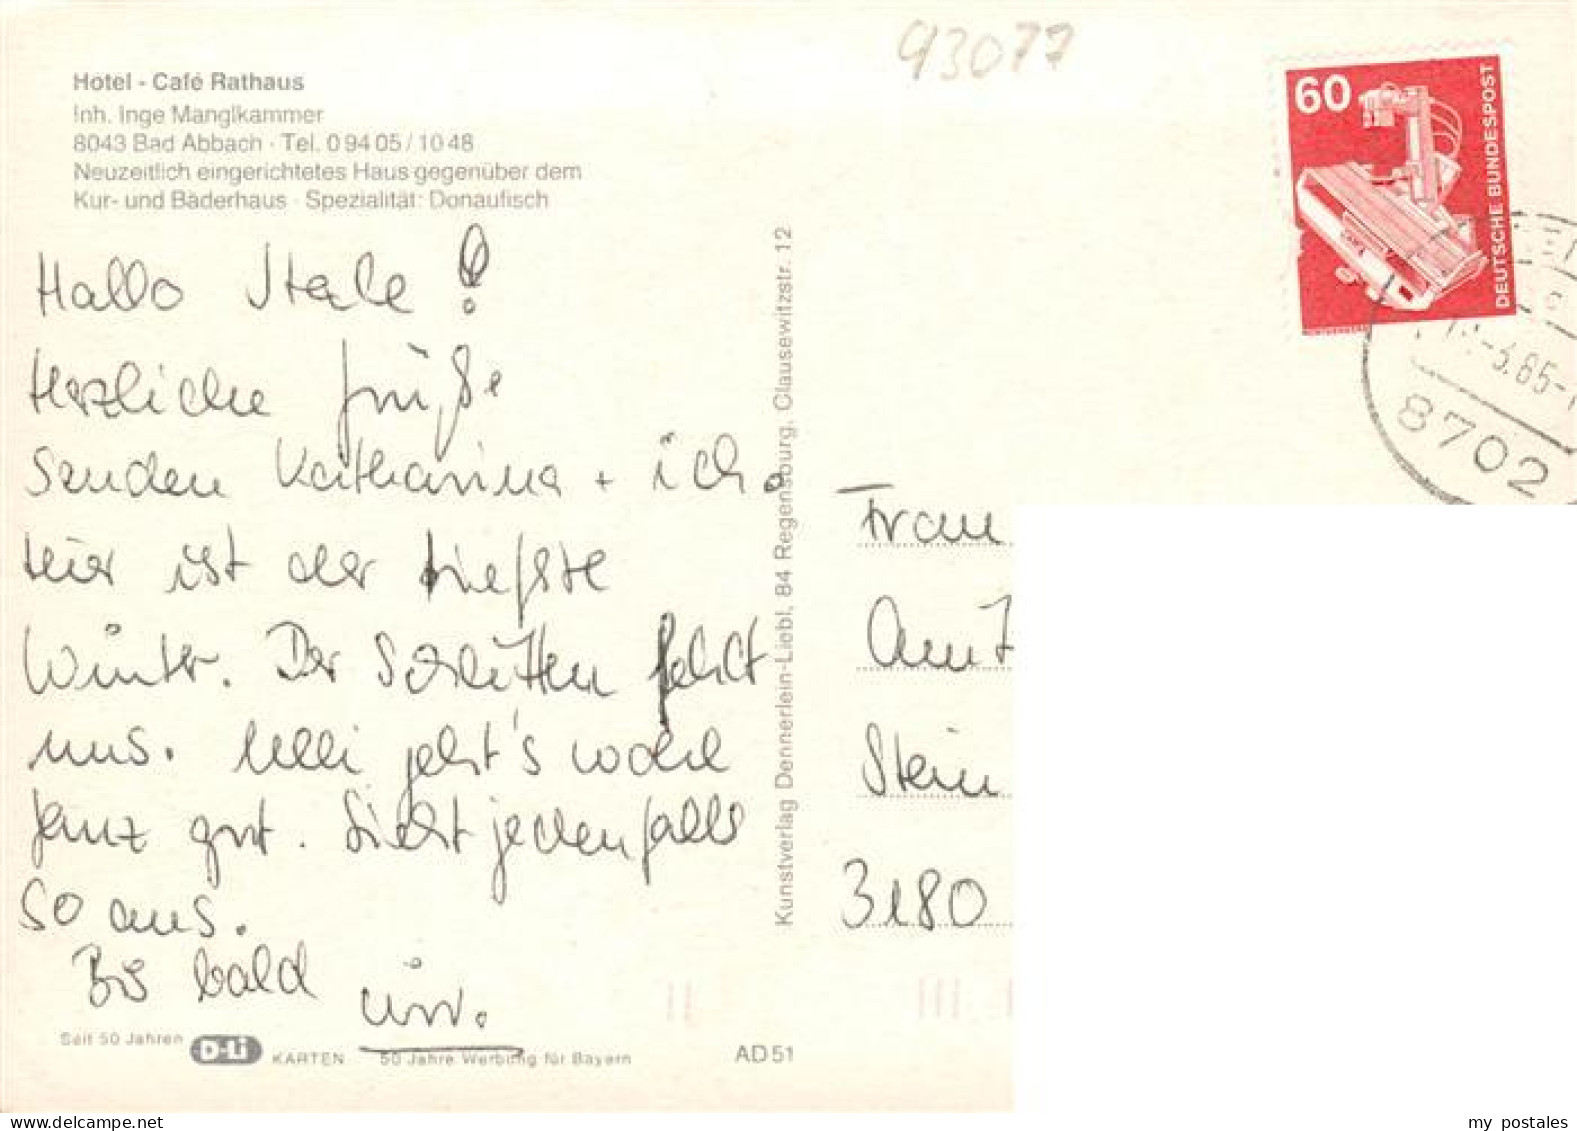 93077
Hotel - Café Rathaus
Inh. Inge Manglkammer
8043 Bad Abbach · Tel. 0 94 05 / 10 48
Neuzeitlich eingerichtetes Haus gegenüber dem
Kur- und Bäderhaus · Spezialität: Donaufisch
60
DEUTSCHE BUNDESPOST
-3.85-
8702
Hallo
Herzliche Grüße
senden Katharina + ich.
Hier ist der tiefste
Winter. Der Schlitten fehlt
uns. Ulli geht's wohl
ganz gut. Sieht jedenfalls
so aus.
Bis bald
Kunstverlag Dennerlein-Liebl, 84 Regensburg, Clausewitzstr. 12
Frau
Stein
3180
Seit 50 Jahren D-Li KARTEN 50 Jahre Werbung für Bayern
AD 51
my postales